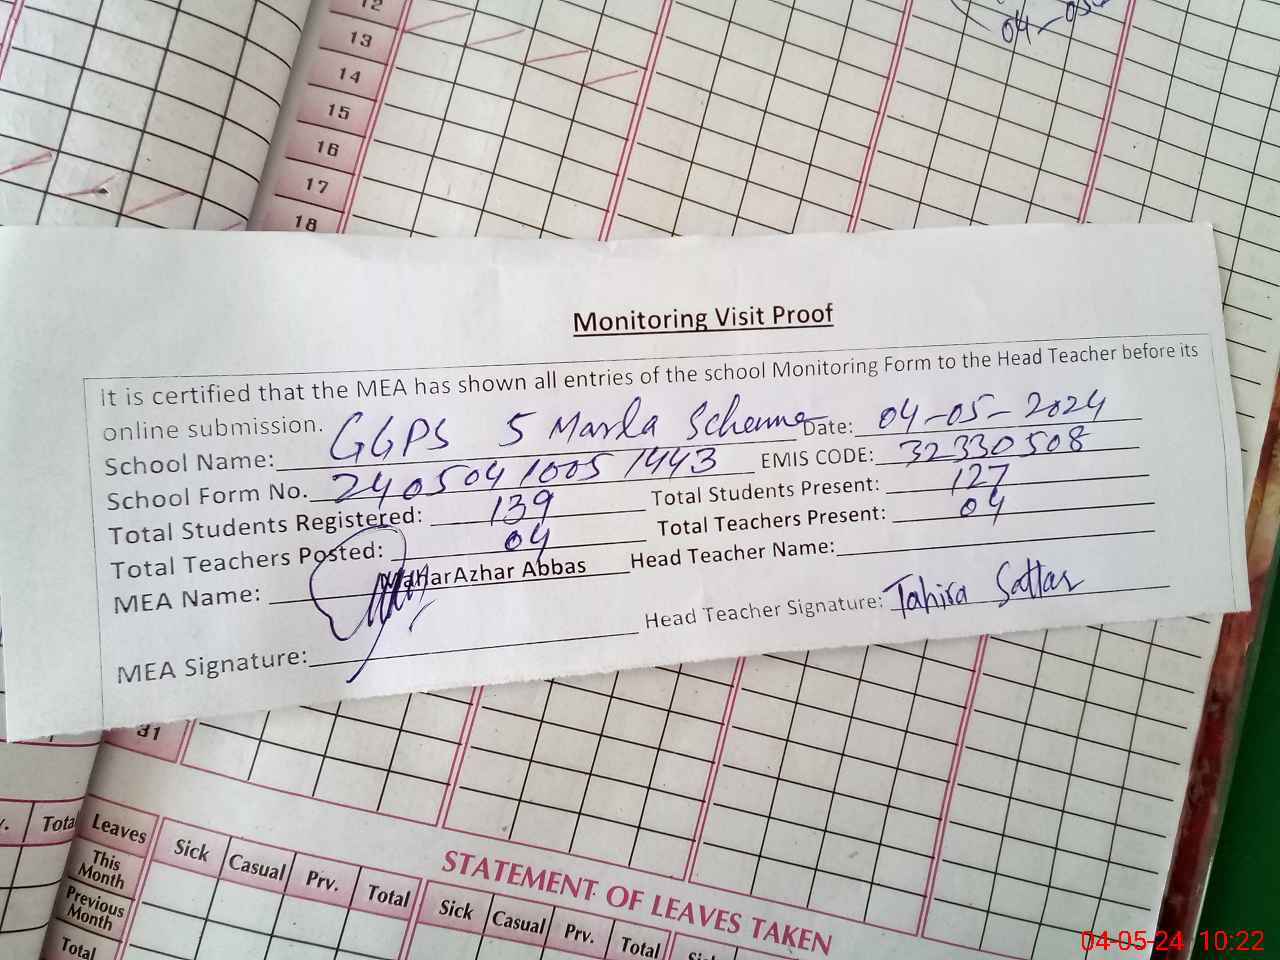 12
13
14
15
16
17
18
04-05-
Monitoring Visit Proof
It is certified that the MEA has shown all entries of the school Monitoring Form to the Head Teacher before its
online submission.
School Name: GGPS 5 Marla Scheme Date: 04-05-2024
School Form No. 24050410051443 EMIS CODE: 32330508
Total Students Registered: 139 Total Students Present: 127
Total Teachers Posted: 04 Total Teachers Present: 04
MEA Name: MaharAzhar Abbas Head Teacher Name:
MEA Signature: Head Teacher Signature: Tahira Sattar
31
Total Leaves Sick Casual Prv. Total Sick Casual Prv. Total
This Month
Previous Month
Total
STATEMENT OF LEAVES TAKEN
04-05-24 10:22